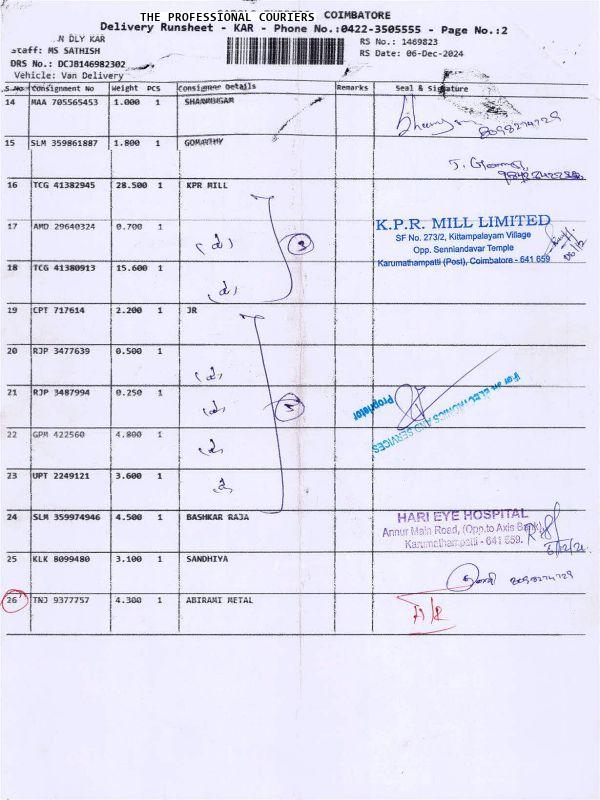 THE PROFESSIONAL COURIERS COIMBATORE
Delivery Runsheet - KAR - Phone No.:0422-3505555 - Page No.:2
N DLY KAR
Staff: MS SATHISH
DRS No.: DCJB146982302
Vehicle: Van Delivery
RS No.: 1469823
RS Date: 06-Dec-2024
S.No Consignment No Weight PCS Consignee Details Remarks Seal & Signature
14 MAA 705565453 1.000 1 SHANMUGAM
8098274729
15 SLM 359861887 1.800 1 GOMATHY
16 TCG 41382945 28.500 1 KPR MILL
17 AMD 29640324 0.700 1
(3)
K.P.R. MILL LIMITED
SF No. 273/2, Kittampalayam Village
Opp. Senniandavar Temple
Karumathampatti (Post), Coimbatore - 641 659
18 TCG 41380913 15.600 1
19 CPT 717614 2.200 1 JR
20 RJP 3477639 0.500 1
21 RJP 3487994 0.250 1
(5)
For JR ELECTRONICS AND SERVICES
Proprietor
22 GPM 422560 4.800 1
23 UPT 2249121 3.600 1
24 SLM 359974946 4.500 1 BASHKAR RAJA
HARI EYE HOSPITAL
Annur Main Road, (Opp.to Axis Bank),
Karumathampatti - 641 659.
25 KLK 8099480 3.100 1 SANDHIYA
8098274729
26 TNJ 9377757 4.300 1 ABIRAMI METAL